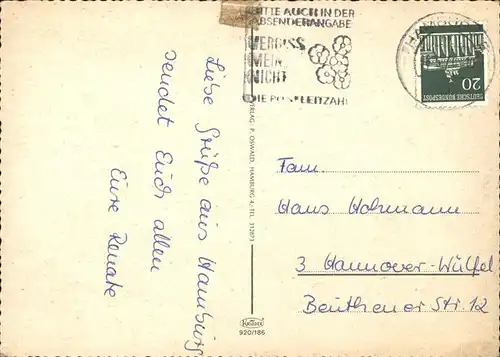 BITTE AUCH IN DER
ABSENDERANGABE
VERGISS
MEIN
NICHT
DIE POSTLEITZAHL
HAMBURG
DEUTSCHE BUNDESPOST
20
Liebe Grüße aus Hamburg
sendet Euch allen
Eure Renate
VERLAG P. OSWALD, HAMBURG 4, TEL. 312073
Fam.
Hans Hohmann
3 Hannover-Wülfel
Beuthener Str. 12
Krüger
920/186